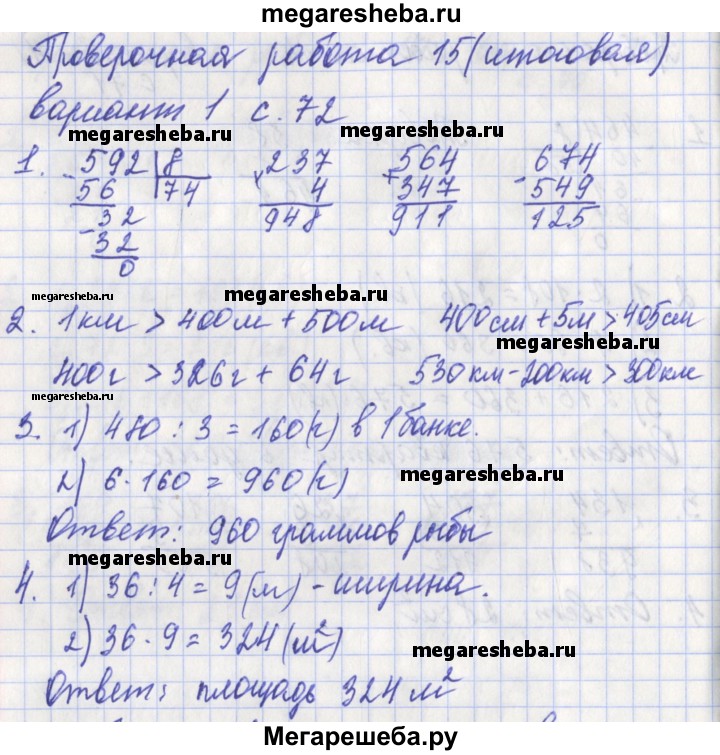 megaresheba.ru
Проверочная работа 15 (итоговая)
вариант 1 с. 72
megaresheba.ru megaresheba.ru
1. 592 | 8 237 564 674
- 56 74 × 4 + 347 - 549
- 32 948 911 125
32
0
megaresheba.ru megaresheba.ru
2. 1 км > 400 м + 500 м 400 см + 5 м > 405 см
megaresheba.ru
400 г > 326 г + 64 г 530 км - 200 км > 300 км
megaresheba.ru
3. 1) 480 : 3 = 160 (г) в 1 банке.
2) 6 · 160 = 960 (г)
megaresheba.ru
Ответ: 960 граммов рыбы
megaresheba.ru
4. 1) 36 : 4 = 9 (м) - ширина.
2) 36 · 9 = 324 (м²)
megaresheba.ru
Ответ: площадь 324 м²
Мегарешеба.ру